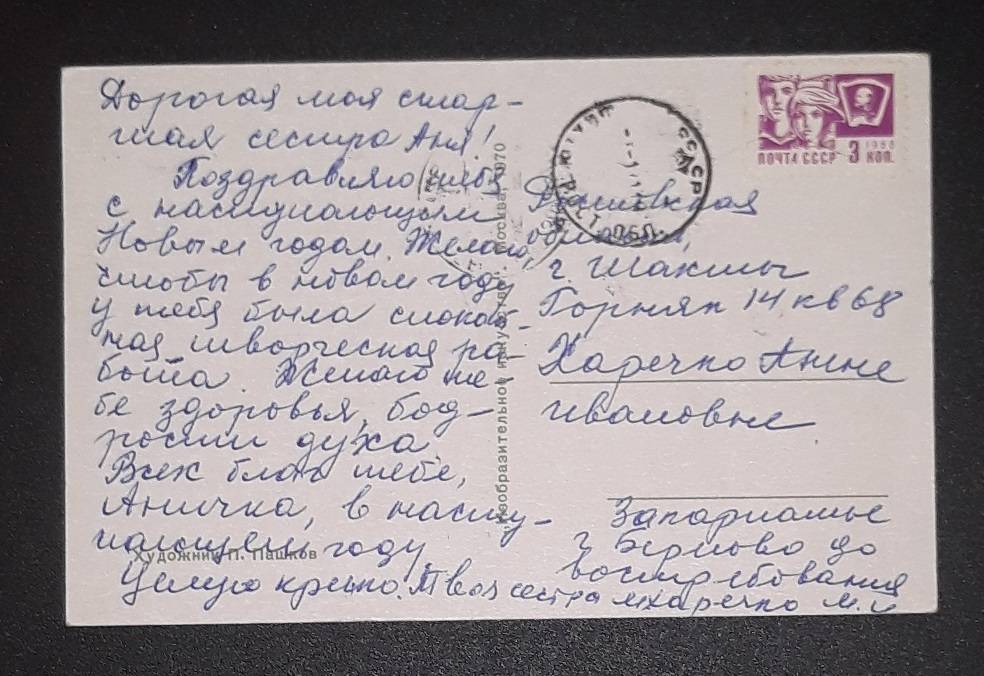 Дорогая моя стар-
шая сестра Аня!
Поздравляю тебя
с наступающим
Новым годом. Желаю,
чтобы в новом году
у тебя была спокой-
ная творческая ра-
бота. Желаю те-
бе здоровья, бод-
рости духа
Всех благ тебе,
Аничка, в насту-
пающем году
Целую крепко. Твоя сестра Харечко М.И
Художник П. Пашков
"Изобразительное искусство". Москва, 1970
ПОЧТА СССР 3 КОП.
1966
СССР
РОСТ. ОБЛ.
Ростовская
область,
г. Шахты
Горняк 14 кв 68
Харечко Анне
Ивановне
Закарпатье
г Берегово до
востребования